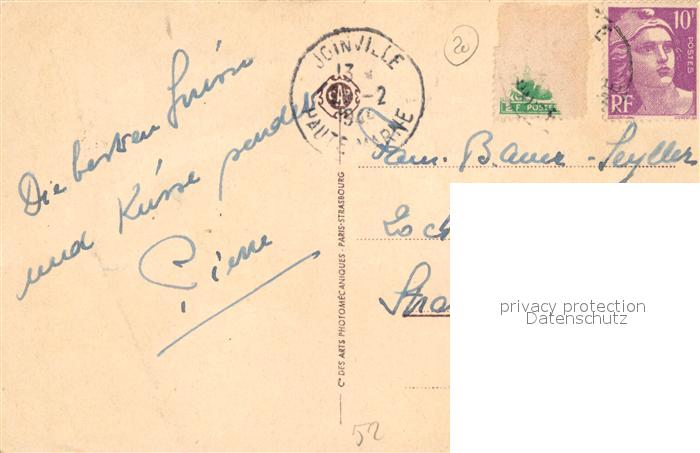 Die besten Grüsse
und Küsse sendet
Pierre
JOINVILLE
13
-2
19
HAUTE-MARNE
20
2F POSTES
10F
POSTES
RF
Fam. Bauer-Seyller
Stra
Cie DES ARTS PHOTOMÉCANIQUES - PARIS-STRASBOURG
52
privacy protection
Datenschutz